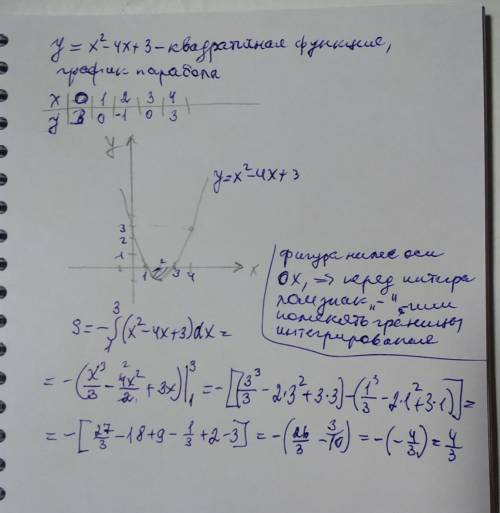 y = x² - 4x + 3 - квадратичная функция,
график парабола
x 0 1 2 3 4
y 3 0 -1 0 3
y
y = x² - 4x + 3
3
2
1
1 2 3 4 x
фигура ниже оси
OX, => перед интегра
лом знак „-“ или
поменять границы
интегрирования
S = -∫₁³ (x² - 4x + 3) dx =
= -(x³/3 - 4x²/2 + 3x)|₁³ = -[(3³/3 - 2·3² + 3·3) - (1³/3 - 2·1² + 3·1)] =
= -[27/3 - 18 + 9 - 1/3 + 2 - 3] = -(26/3 - 10) = -(-4/3) = 4/3